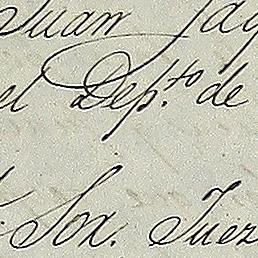 Juan
el Dep.to de
Sox. Juez